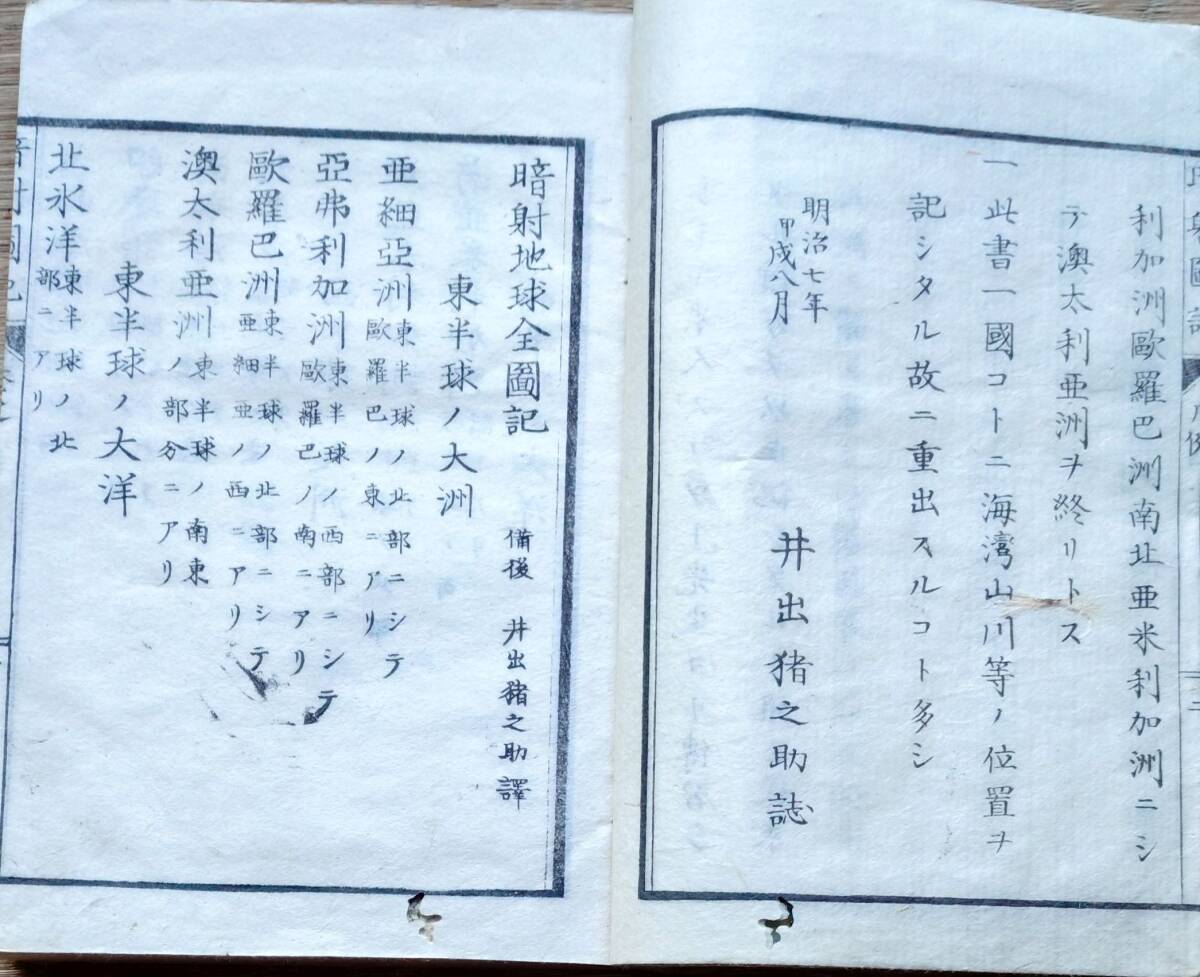 利加洲歐羅巴洲南北亜米利加洲ニシ
テ澳太利亜洲ヲ終リトス
一此書一國コトニ海灣山川等ノ位置ヲ
記シタル故ニ重出スルコト多シ
明治七年
甲戌八月
井出猪之助誌
暗射地球全圖記
備後 井出猪之助譯
東半球ノ大洲
亜細亞洲東半球ノ北部ニシテ
歐羅巴ノ東ニアリ
亞弗利加洲東半球ノ西部ニシテ
歐羅巴ノ南ニアリ
歐羅巴洲東半球ノ北部ニシテ
亜細亜ノ西ニアリ
澳太利亜洲東半球ノ南東
ノ部分ニアリ
東半球ノ大洋
北氷洋東半球ノ北
部ニアリ